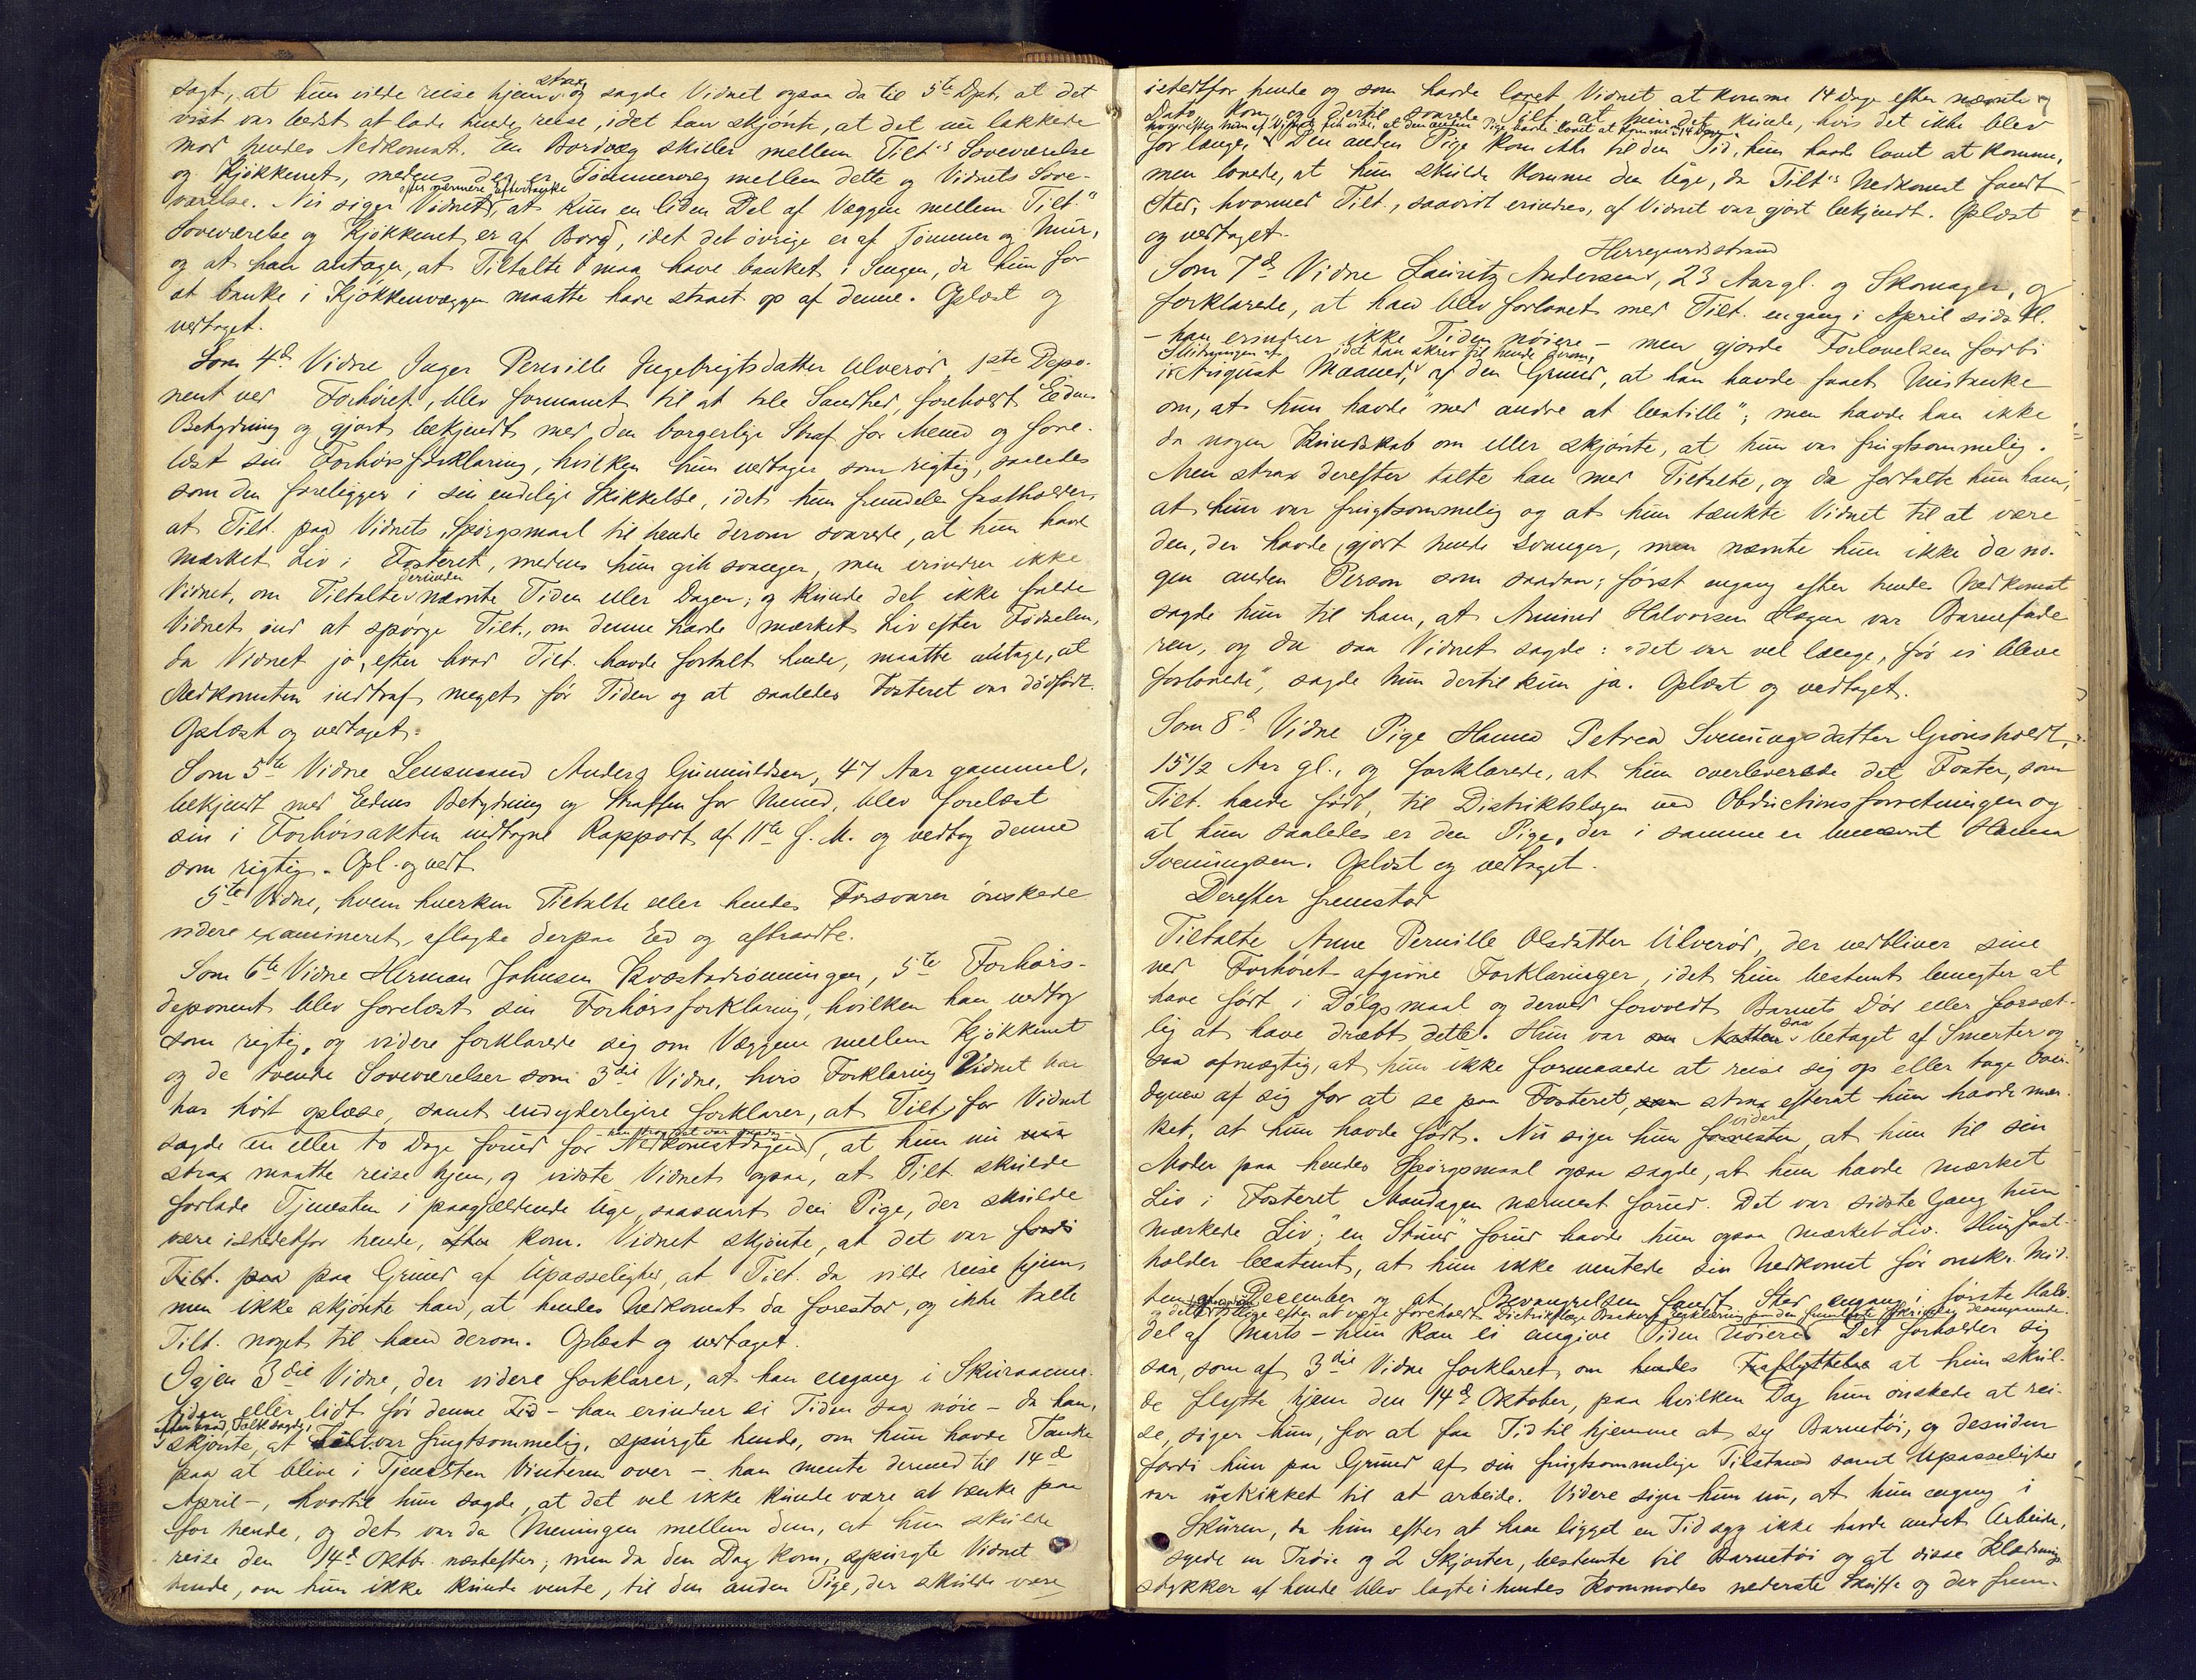 sagt, at hun vilde reise hjem strax og sagde Vidnet ogsaa da til 5te Dpt, at det
vist var bedst at lade hende reise, idet han skjønte, at det nu lakkede
mod hendes Nedkomst. En Bordvæg skiller mellem Tilt's Soveværelse
og Kjøkkenet, medens der er Tømmervæg mellem dette og Vidnets Sove-
værelse. Nu siger Vidnet efter nærmere Eftertanke, at kun en liden Del af Væggen mellem Tilt.'s
Soveværelse og Kjøkkenet er af Bord, idet det øvrige er af Tømmer og Mur,
og at han antager, at Tiltalte maa have banket i Sengen, da hun for
at banke i Kjøkkenvæggen maatte have staaet op af denne. Oplæst og
vedtaget.
Som 4de Vidne Inger Pernille Ingebrigtsdatter Ulverød, 1ste Depo-
nent ved Forhøret, blev formanet til at tale Sandhed, foreholdt Edens
Betydning og gjort bekjendt med den borgerlige Straf for Mened og fore-
læst sin Forhørsforklaring, hvilken hun vedtager som rigtig, saaledes
som den foreligger i sin endelige Skikkelse, idet hun fremdeles fastholder,
at Tilt. paa Vidnets Spørgsmaal til hende derom svarede, at hun havde
mærket Liv i Fosteret, medens hun gik svanger, men erindrer ikke
Vidnet, om Tiltalte derunder nævnte Tiden eller Dagen; og kunde det ikke falde
Vidnet ind at spørge Tilt., om denne havde mærket Liv efter Fødselen,
da Vidnet jo, efter hvad Tilt. havde fortalt hende, maatte antage, at
Nedkomsten indtraf meget før Tiden og at saaledes Fosteret var dødfødt.
Oplæst og vedtaget.
Som 5te Vidne Lensmand Anders Gunnuldsen, 47 Aar gammel,
bekjendt med Edens Betydning og Straffen for Mened, blev forelæst
sin i Forhørsakten indtagne Rapport af 11te f. M. og vedtog denne
som rigtig. Opl. og vedt.
5te Vidne, hvem hverken Tiltalte eller hendes Forsvarer ønskede
videre examineret, aflagde derpaa Eed og aftraadte.
Som 6te Vidne Herman Johnsen Kvæstadrønningen, 5te Forhørs-
deponent blev forelæst sin Forhørsforklaring, hvilken han vedtog
som rigtig, og videre forklarede sig om Væggene mellem Kjøkkenet
og de tvende Soveværelser som 3die Vidne, hvis Forklaring Vidnet har
har hørt oplæse, samt endyderligere forklarer, at Tilt. for Vidnet
sagde en eller to Dage forud for Nedkomstdagen, at hun nu nu
strax maatte reise hjem, og vidste Vidnet ogsaa, at Tilt. skulde
forlade Tjenesten i paagjældende Uge, saasnart den Pige, der skulde
være istedetfor hende, kom. Vidnet skjønte, at det var fordi
Tilt. paa paa Grund af Upasselighed, at Tilt. da vilde reise hjem,
men ikke skjønte han, at hendes Nedkomst da forestod, og ikke talte
Tilt. noget til ham derom. Oplæst og vedtaget.
Igjen 3die Vidne, der videre forklarer, at han engang i Skuraanne-
tiden eller lidt før denne Tid – han erindrer ei Tiden saa nøie – da han,
efter hvad Folk sagde, skjønte, at Tilt. var frugtsommelig, spurgte hende, om hun havde Tanke
paa at blive i Tjenesten Vinteren over – han mente dermed til 14de
April –, hvortil hun sagde, at det vel ikke kunde være at tænke paa
for hende, og det var da Meningen mellem dem, at hun skulde
reise den 14de Oktbr. næstefter; men da den Dag kom, spurgte Vidnet
hende, om hun ikke kunde vente, til den anden Pige, der skulde være
istedtfor hende og som havde lovet Vidnet at komme 14 Dage efter nævnte
Dato kom, og dertil svarede Tilt. at hun det kunde, hvis det ikke blev
for længe. Den anden Pige kom ikke til den Tid, hun havde lovet at komme,
men lovede, at hun skulde komme den Uge, da Tilt's Nedkomst fandt
Sted, hvormed Tilt., saavidt erindres, af Vidnet var gjort bekjendt. Oplæst
og vedtaget.
Som 7de Vidne Lauritz Andersen Herregaardsstrand, 23 Aar gl. og Skomager, og
forklarede, at han blev forlovet med Tilt. engang i April sidstl.
– han erindrer ikke Tiden nøiere – men gjorde Forlovelsen forbi
i August Maaned, idet han skrev til hende derom, af den Grund, at han havde faaet Mistanke
om, at hun havde "med andre at bestille"; men havde han ikke
da nogen Kundskab om eller skjønte, at hun var frugtsommelig.
Men strax derefter talte han med Tiltalte, og da fortalte hun ham,
at hun var frugtsommelig og at hun tænkte Vidnet til at være
den, der havde gjort hende svanger, men nævnte hun ikke da no-
gen anden Person som saadan; først engang efter hendes Nedkomst
sagde hun til ham, at Amund Halvorsen Hægen var Barnefade
ren, og da saa Vidnet sagde: "det var vel længe, før vi bleve
forlovede", sagde hun dertil kun ja. Oplæst og vedtaget.
Som 8de Vidne Pige Hanna Petrea Sveningsdatter Gronsholdt,
15 1/2 Aar gl., og forklarede, at hun overleverede det Foster, som
Tilt. havde født, til Distriktslægen ved Obductionsforretningen og
at hun saaledes er den Pige, der i samme er benævnt Hanna
Sveningsen. Oplæst og vedtaget.
Derefter fremstod
Tiltalte Anne Pernille Olsdatter Ulverød, der vedbliver sine
ved Forhøret afgivne Forklaringer, idet hun bestemt benegter at
have født i Dølgsmaal og derved forvoldt Barnets Død eller forsæt-
lig at have dræbt dette. Hun var om Natten saa betaget af Smerter og
saa afmægtig, at hun ikke formaaede at reise sig op eller tage Over-
dynen af sig for at se paa Fosteret, strax efterat hun havde mær-
ket, at hun havde født. Nu siger hun videre, at hun til sin
Moder paa hendes Spørgsmaal ogsaa sagde, at hun havde mærket
Liv i Fosteret Mandagen nærmest forud. Det var sidste Gang hun
mærkede Liv; "en Stund" forud havde hun ogsaa mærket Liv. Hun fast-
holder bestemt, at hun ikke ventede sin Nedkomst før omkr. Mid-
ten af December og at Besvangrelsen fandt Sted engang i første Halv-
del af Marts – hun kan ei angive Tiden nøiere. Det forholder sig
saa, som af 3die Vidne forklaret, om hendes Fraflyttelse at hun skul-
de flytte hjem den 14de Oktober, paa hvilken Dag hun ønskede at rei-
se, siger hun, for at faa Tid til hjemme at sy Barnetøi, og desuden
fordi hun paa Grund af sin frugtsommelige Tilstand samt Upasselighed
var uskikket til at arbeide. Videre siger hun nu, at hun engang i
Skuren, da hun efter at have ligget en Tid syg ikke havde andet Arbeide,
syede en Trøie og 2 Skjorter, bestemte til Barnetøi og at disse Klædnings-
stykker af hende blev lagte i hendes Kommodes nederste Skuffe og der frem-